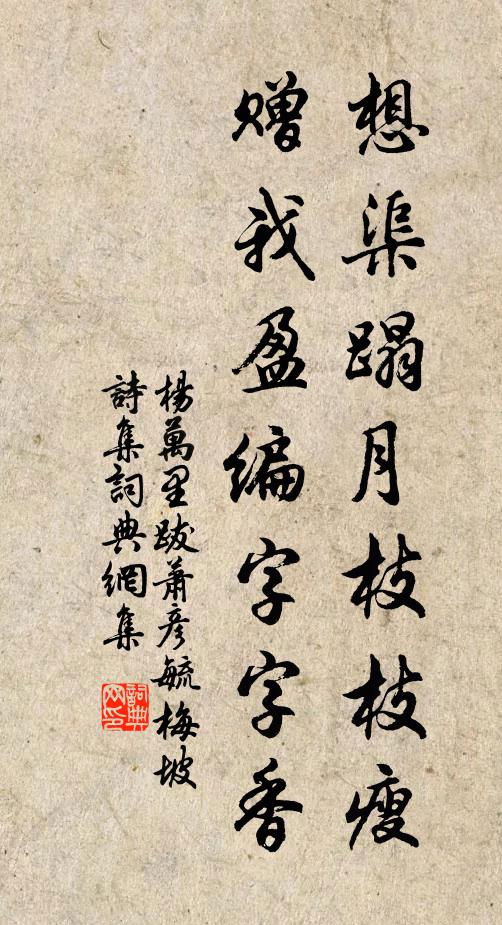 想渠蹋月枝枝瘦
赠我盈编字字香
楊萬里跋蕭彦毓梅坡
詩集詞典網集
詞典網印